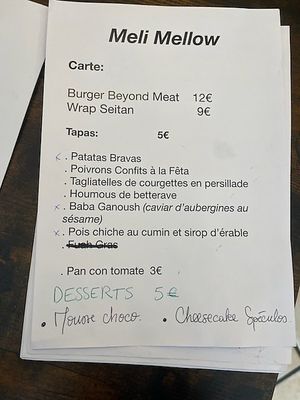 Meli Mellow
Carte:
Burger Beyond Meat 12€
Wrap Seitan 9€
Tapas: 5€
x . Patatas Bravas
. Poivrons Confits à la Fêta
. Tagliatelles de courgettes en persillade
. Houmous de betterave
x . Baba Ganoush (caviar d'aubergines au
sésame)
x . Pois chiche au cumin et sirop d'érable
. Fush Gras
. Pan con tomate 3€
DESSERTS 5€
• Mousse choco. • Cheesecake Spéculos